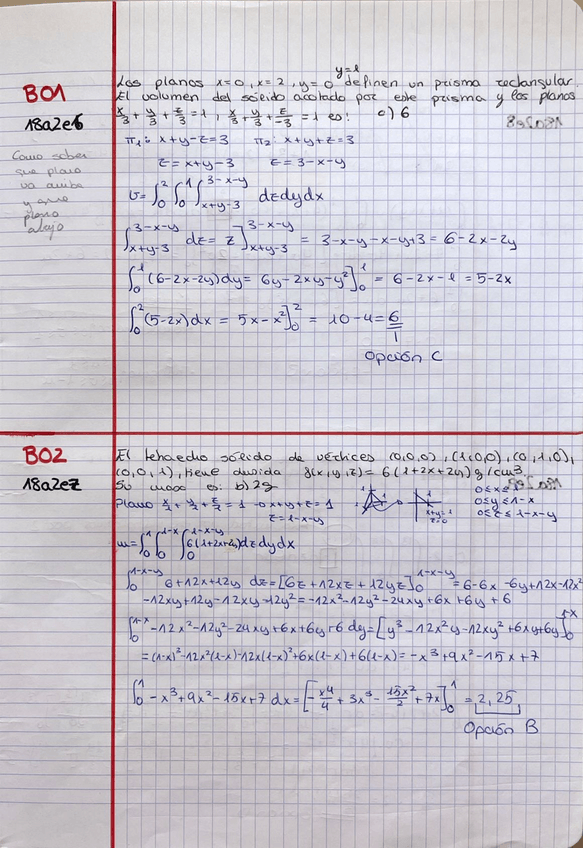 y=1
B01 Los planos x=0, x=2, y=0 definen un prisma rectangular.
El volumen del sólido acotado por este prisma y los planos
18a2e6 x/3 + y/3 + z/3 = 1, x/3 + y/3 + z/-3 = 1 es: c) 6
π₁: x+y-z=3 π₂: x+y+z=3
Como saber
que plano
va arriba
y que
plano
abajo
z = x+y-3 z = 3-x-y
v = ∫₀² ∫₀¹ ∫_{x+y-3}^{3-x-y} dz dy dx
∫_{x+y-3}^{3-x-y} dz = z]_{x+y-3}^{3-x-y} = 3-x-y-x-y+3 = 6-2x-2y
∫₀¹ (6-2x-2y)dy = 6y-2xy-y²]₀¹ = 6-2x-1 = 5-2x
∫₀² (5-2x)dx = 5x-x²]₀² = 10-4=6
Opción C
B02 El tetraedro sólido de vértices (0,0,0), (1,0,0), (0,1,0),
18a2e7 (0,0,1), tiene f(x,y,z) = 6(1+2x+2y) g/cm³
Su masa es: b) 2g
Plano x/1 + y/1 + z/1 = 1 → x+y+z=1
z=1-x-y
x+y=1
z=0
0≤x≤1
0≤y≤1-x
0≤z≤1-x-y
m = ∫₀¹ ∫₀^{1-x} ∫₀^{1-x-y} 6(1+2x+2y)dz dy dx
∫₀^{1-x-y} 6+12x+12y dz = [6z+12xz+12yz]₀^{1-x-y} = 6-6x-6y+12x-12x²
-12xy+12y-12xy-12y² = -12x²-12y²-24xy+6x+6y+6
∫₀^{1-x} -12x²-12y²-24xy+6x+6y+6 dy = [y³-12x²y-12xy²+6xy+6y]₀^{1-x}
= (1-x)³-12x²(1-x)-12x(1-x)²+6x(1-x)+6(1-x) = -x³+9x²-15x+7
∫₀¹ -x³+9x²-15x+7 dx = [-x⁴/4 + 3x³ - 15x²/2 + 7x]₀¹ = 2,25
Opción B